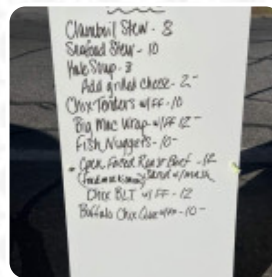 Seafood Stew - 10
Soup - 3
Add grilled cheese - 2-
Chix Tenders w/FF - 10
Big Mac Wrap w/FF 12-
Fish Nuggets - 10-
Open Faced Roast Beef - 12
Sand w/mash
Chix BLT w/FF - 12
Buffalo Chix Ques w/FF - 10-